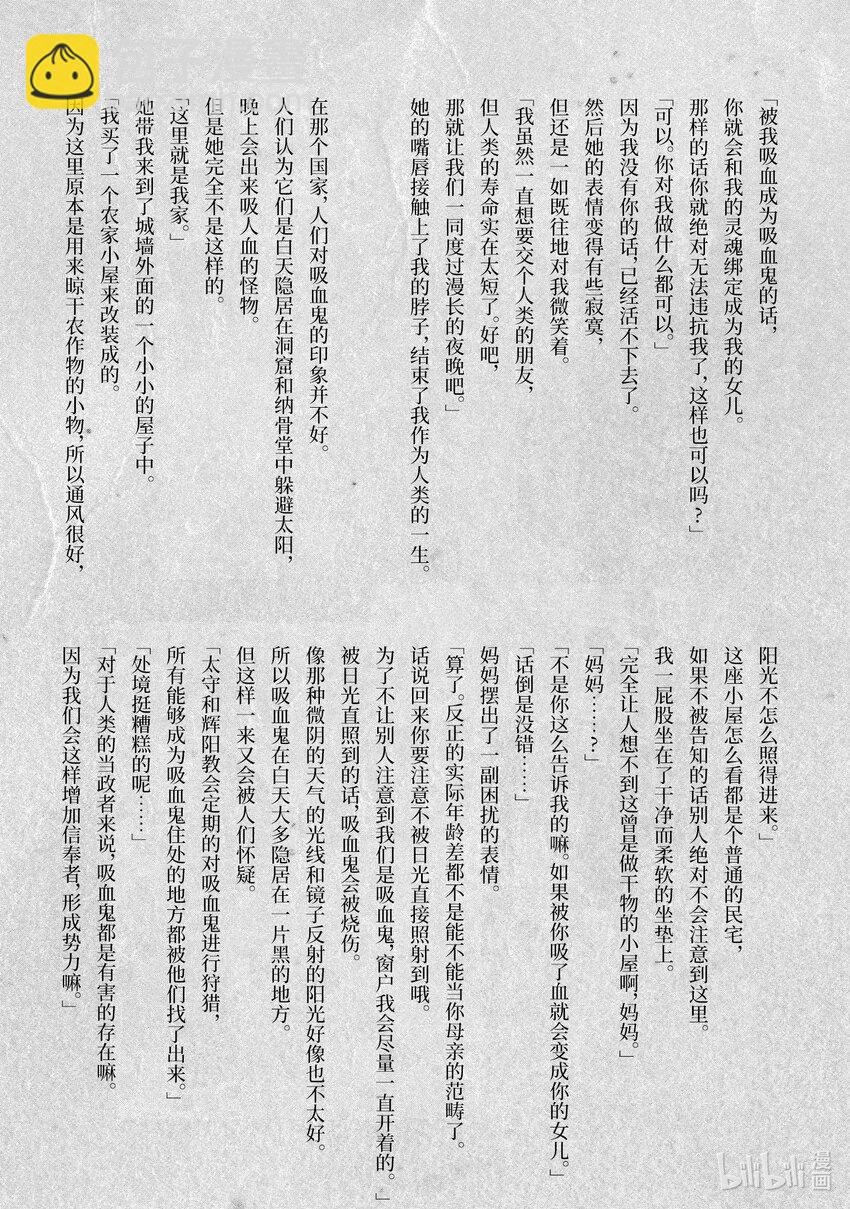 「被我吸血成为吸血鬼的话，
你就会和我的灵魂绑定成为我的女儿。
那样的话你就绝对无法违抗我了，这样也可以吗?」
「可以。你对我做什么都可以。」
因为我没有你的话，已经活不下去了。
然后她的表情变得有些寂寞，
但还是一如既往地对我微笑着。
「我虽然一直想要交个人类的朋友，
但人类的寿命实在太短了。好吧，
那就让我们一同度过漫长的夜晚吧。」
她的嘴唇接触上了我的脖子，结束了我作为人类的一生。
在那个国家，人们对吸血鬼的印象并不好。
人们认为它们是白天隐居在洞窟和纳骨堂中躲避太阳，
晚上会出来吸人血的怪物。
但是她完全不是这样的。
「这里就是我家。」
她带我来到了城墙外面的一个小小的屋子中。
「我买了一个农家小屋来改装成的。
因为这里原本是用来晾干农作物的小物，所以通风很好，
阳光不怎么照得进来。」
这座小屋怎么看都是个普通的民宅，
如果不被告知的话别人绝对不会注意到这里。
我一屁股坐在了干净而柔软的坐垫上。
「完全让人想不到这曾是做干物的小屋啊，妈妈。」
「妈妈……?」
「不是你这么告诉我的嘛。如果被你吸了血就会变成你的女儿。」
「话倒是没错……」
妈妈摆出了一副困扰的表情。
「算了。反正的实际年龄差都不是能不能当你母亲的范畴了。
话说回来你要注意不被日光直接照射到哦。
为了不让别人注意到我们是吸血鬼，窗户我会尽量一直开着的。」
被日光直照到的话，吸血鬼会被烧伤。
像那种微阴的天气的光线和镜子反射的阳光好像也不太好。
所以吸血鬼在白天大多隐居在一片黑的地方。
但这样一来又会被人们怀疑。
「太守和辉阳教会定期的对吸血鬼进行狩猎，
所有能够成为吸血鬼住处的地方都被他们找了出来。」
「处境挺糟糕的呢……」
「对于人类的当政者来说，吸血鬼都是有害的存在嘛。
因为我们会这样增加信奉者，形成势力嘛。」
bilibili漫画